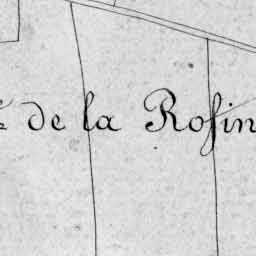 de la Rosin